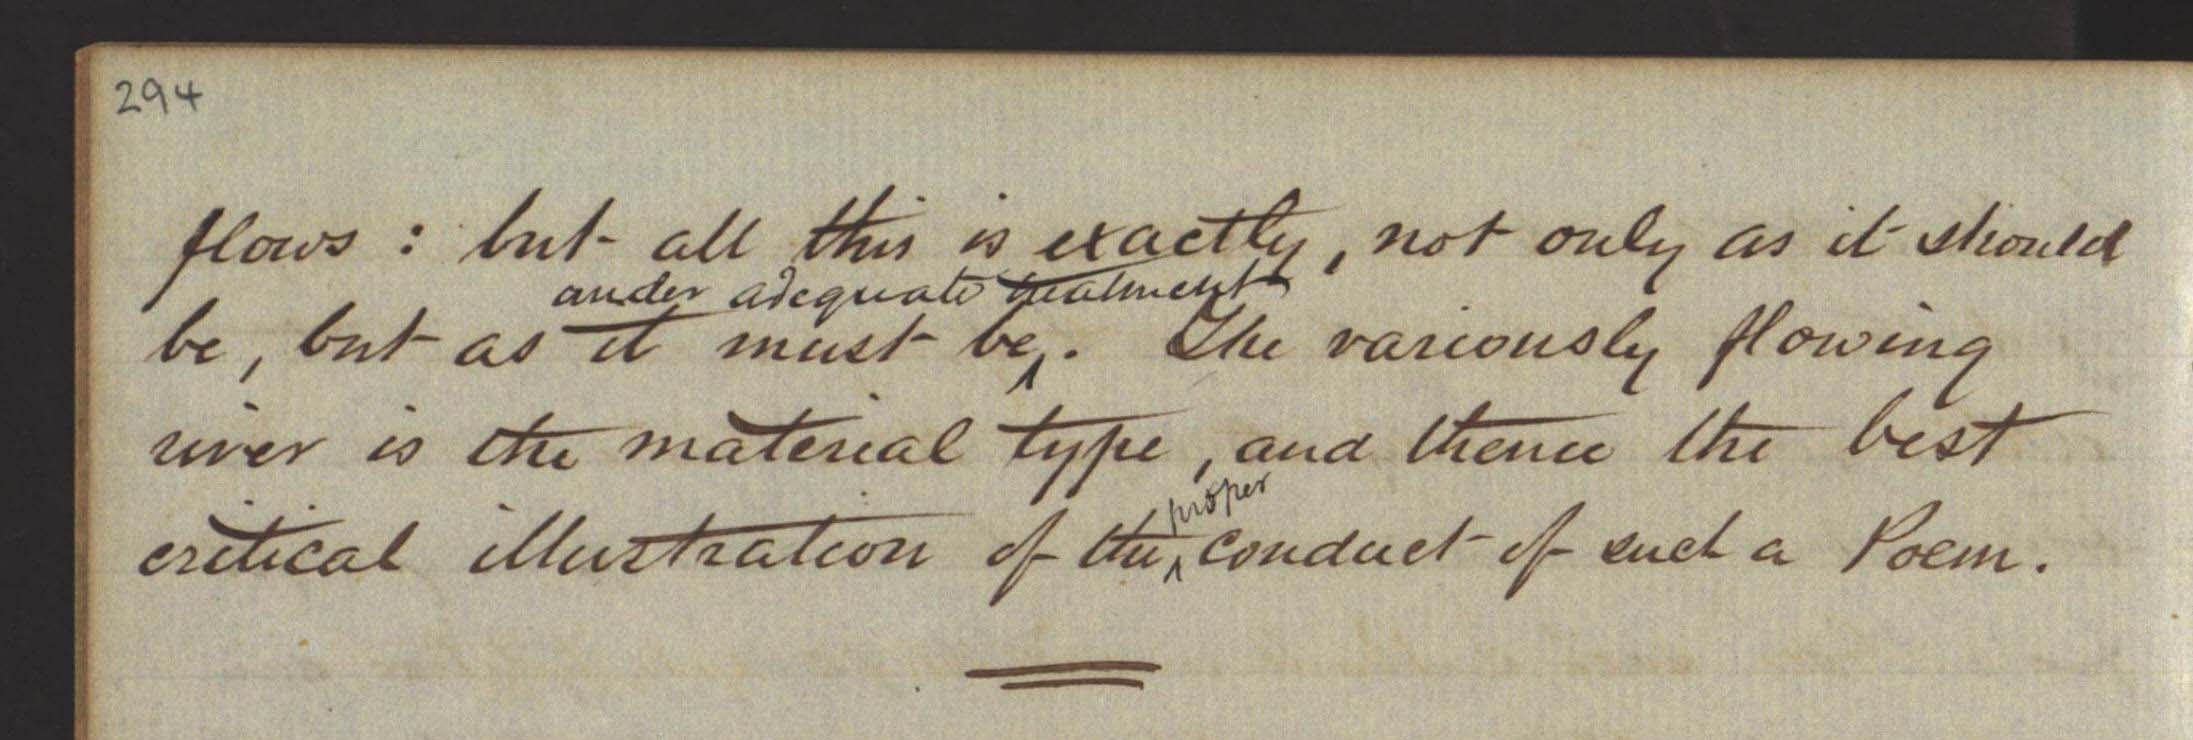 294
flows : but all this is exactly, not only as it should
under adequate treatment
be, but as it must be ‸. The variously flowing
river is the material type, and thence the best
proper
critical illustration of the ‸ conduct of such a Poem.